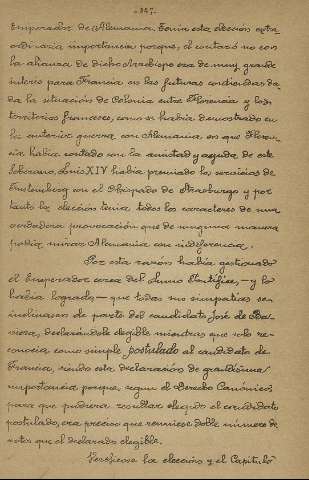 - 347 -
Emperador de Alemania. Tenía esta elección extra-
ordinaria importancia porque, el contar ó no con
la alianza de dicho Arzobispo era de muy grande
interés para Francia en las futuras contiendas da-
da la situación de Colonia entre Florencia y los
territorios franceses, como se había demostrado en
la anterior guerra con Alemania en que Floren-
cia había contado con la amistad y ayuda de este
Soberano. Louis XIV había premiado los servicios de
Furstenberg con el Obispado de Strasburgo y por
tanto la elección tenía todos los caracteres de una
verdadera provocación que de ninguna manera
podía mirar Alemania con indiferencia.
Por esta razón había gestionado
el Emperador cerca del Sumo Pontífice, - y lo
había logrado, - que todas sus simpatías se
inclinasen de parte del candidato José de Ba-
viera, declarándole elegible mientras que solo re-
conocía como simple postulado al candidato de
Francia, siendo esta declaración de grandísima
importancia porque, según el Derecho Canónico,
para que pudiera resultar elegido el candidato
postulado, era preciso que reuniese doble número de
votos que el declarado elegible.
Verificose la elección y el Capítulo